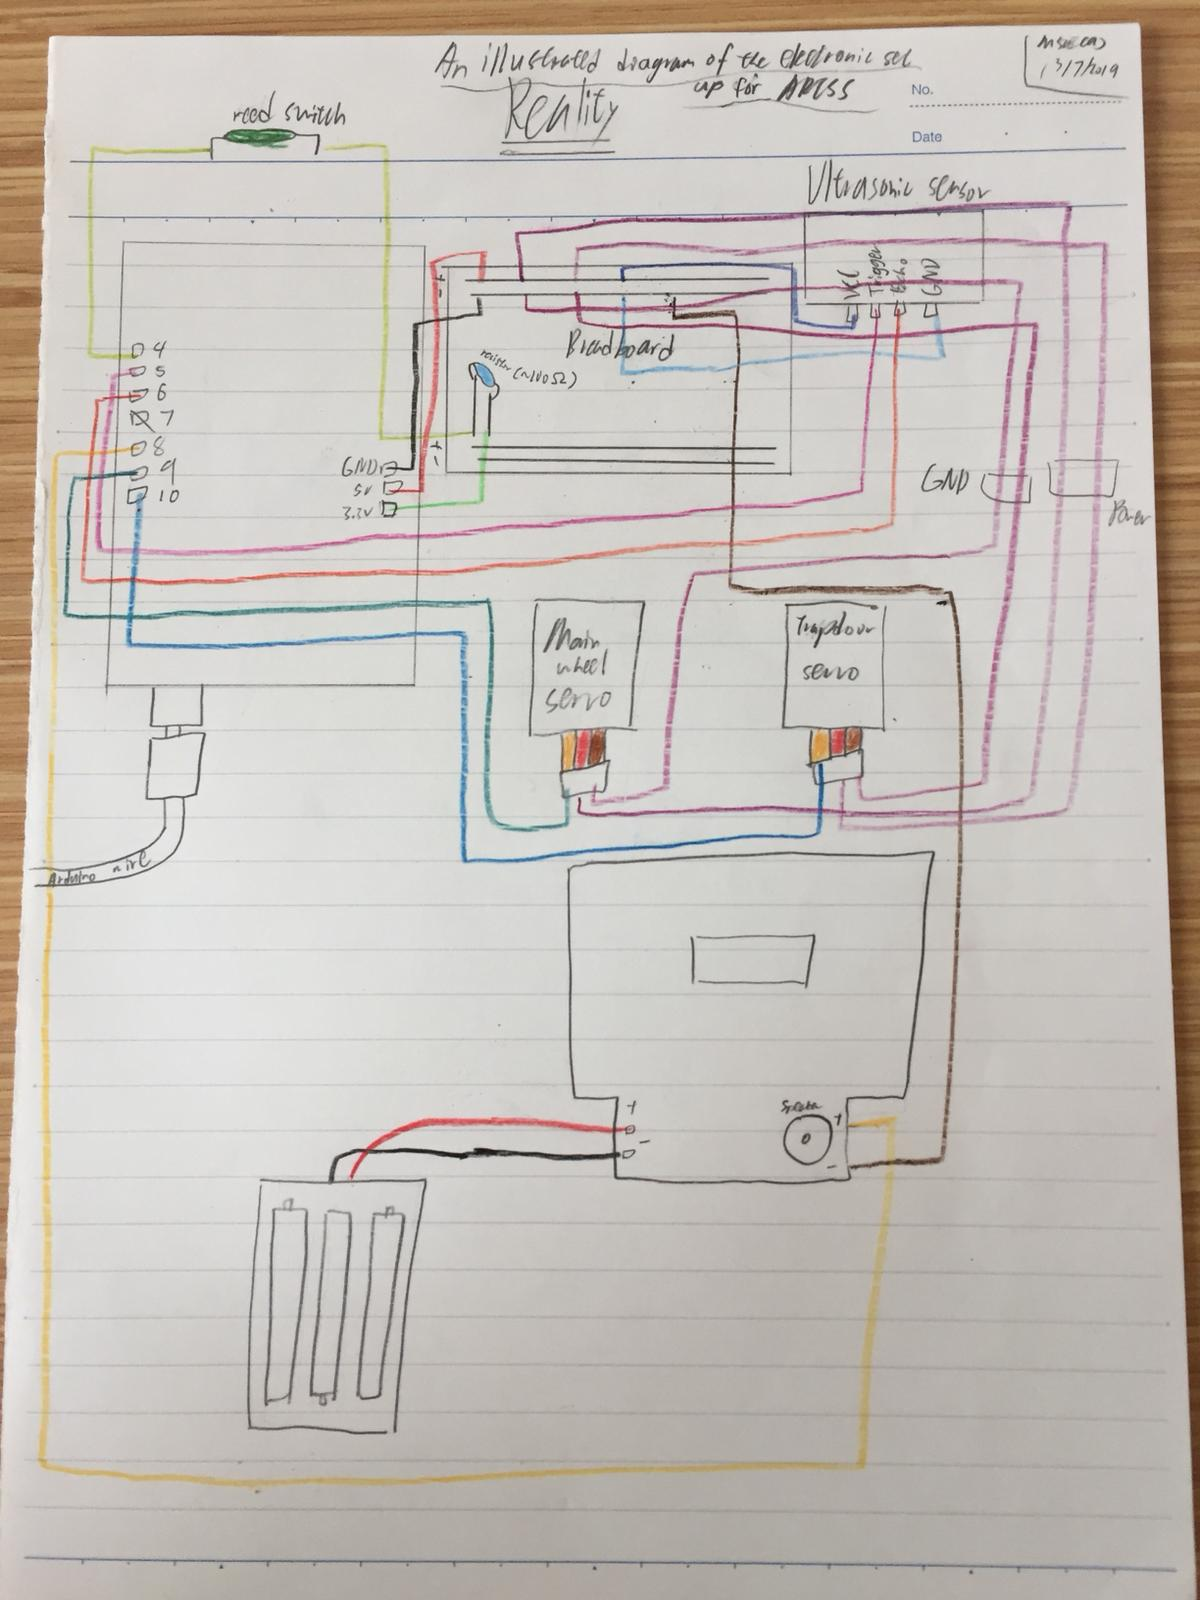 An illustrated diagram of the electronic set
up for APCSS
Reality
13/7/2019
No.
Date
reed switch
Ultrasonic sensor
VCC
Trigger
Echo
GND
+
-
Breadboard
resistor (~100Ω)
4
5
6
7
8
9
10
GND
5V
3.3V
+
-
GND
Power
Main
wheel
servo
Trapdoor
servo
Arduino wire
+
-
Speaker
+
-